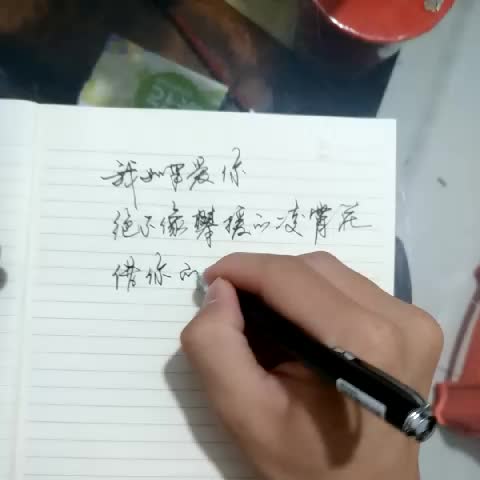 我如果爱你
绝不像攀援的凌霄花
借你的